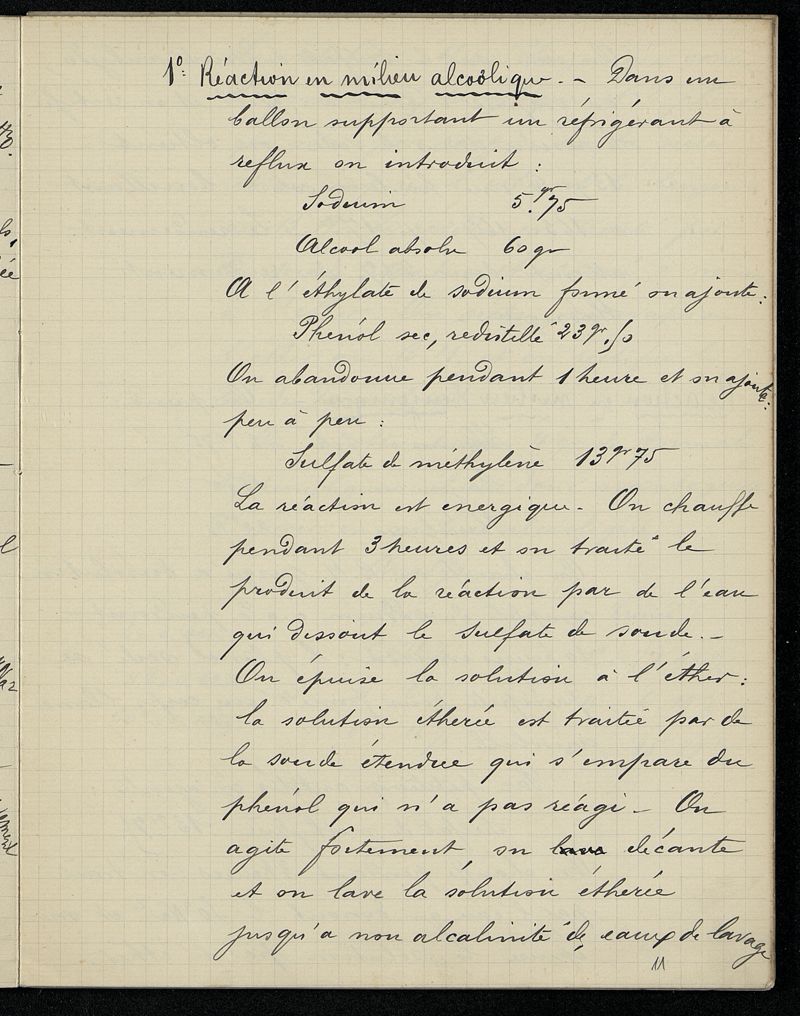 1º: Réaction en milieu alcoolique. – Dans un
ballon supportant un réfrigérant à
reflux on introduit :
Sodium 5.gr75
Alcool absolu 60 gr
A l'éthylate de sodium formé on ajoute :
Phénol sec, redistillé 23gr,50
On abandonne pendant 1 heure et on ajoute :
peu à peu :
Sulfate de méthylène 13gr75
La réaction est energique. On chauffe
pendant 3 heures et on traite le
produit de la réaction par de l'eau
qui dissout le sulfate de soude. –
On épuise la solution à l'éther :
la solution éthérée est traitée par de
la soude étendue qui s'empare du
phénol qui n'a pas réagi – On
agite fortement, on décante
et on lave la solution éthérée
jusqu'a non alcalinité de, eaux de lavage
11